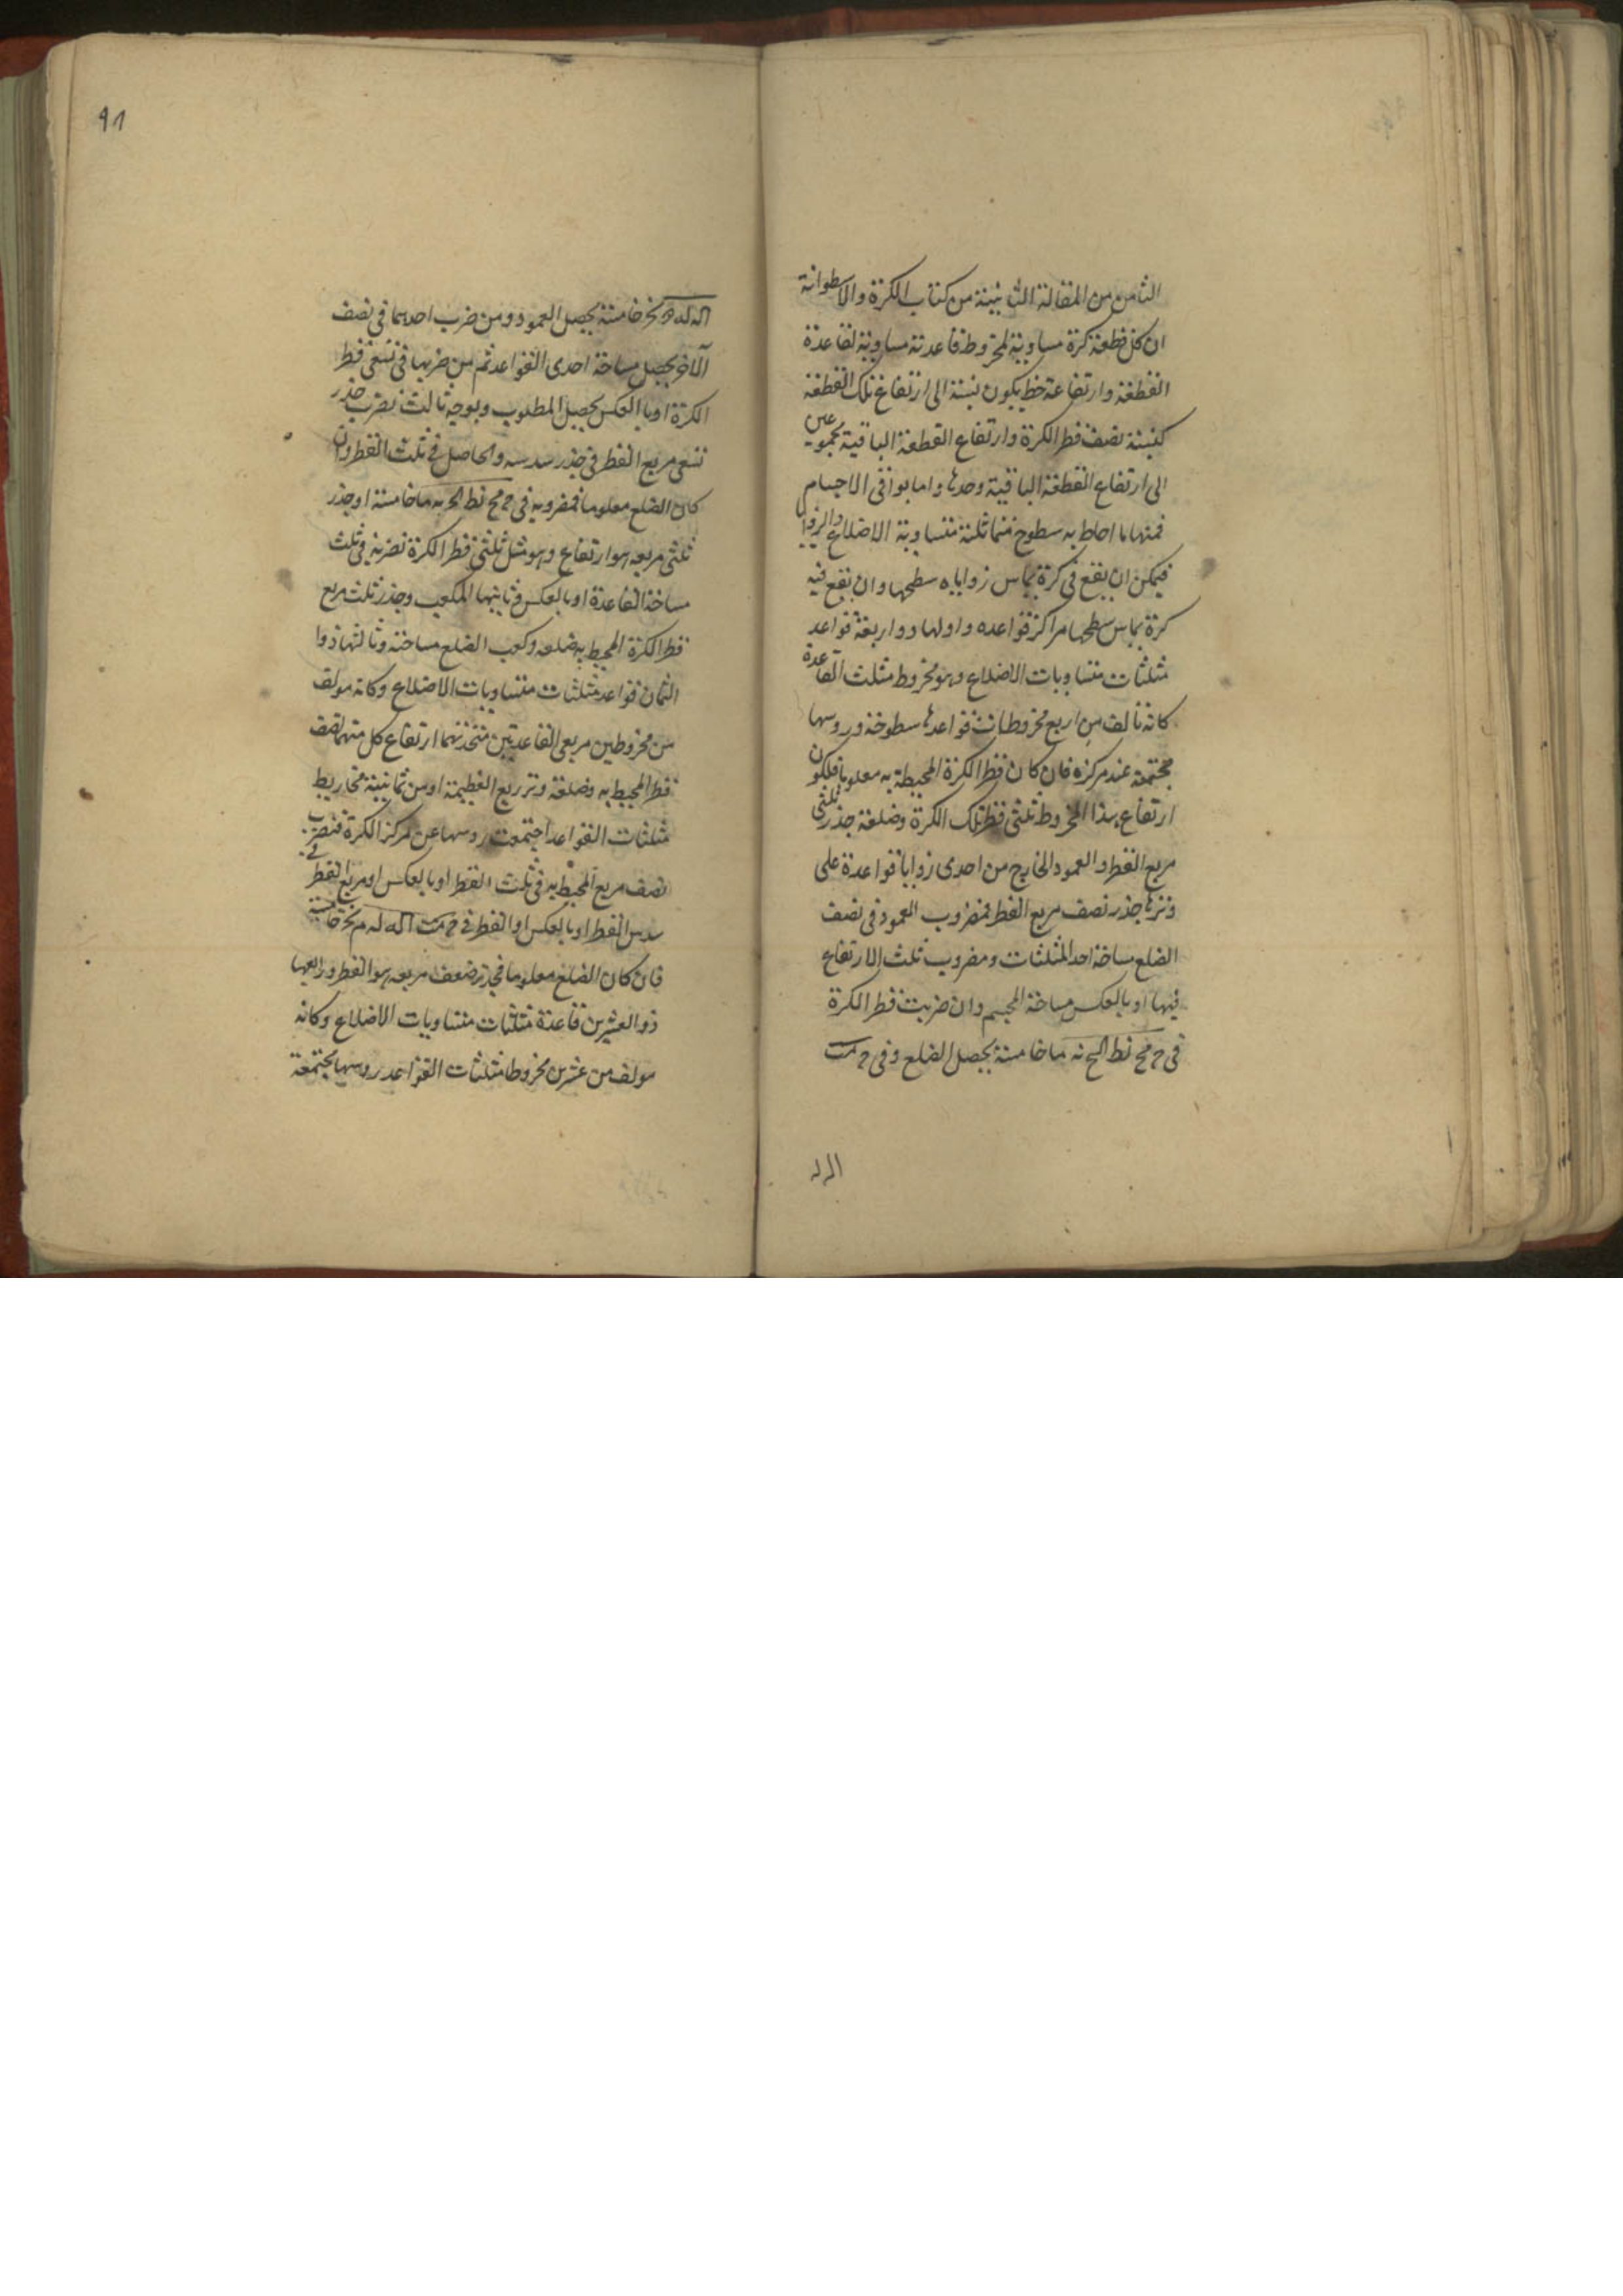 الثامن من المقالة الثانية من كتاب الكرة والاسطوانة
ان كل قطعة كرة مساوية لمخروط قاعدته مساوية لقاعدة
القطعة وارتفاعه خط يكون نسبته الى ارتفاع تلك القطعة
كنسبة نصف قطر الكرة وارتفاع القطعة الباقية مجموعين
الى ارتفاع القطعة الباقية وحدها واما بواقى الاجسام
فمنها ما احاط به سطوح متماثلة متساوية الاضلاع والزوايا
فيمكن ان يقع فى كرة يماس زواياه سطحها وان يقع فيه
كرة يماس سطحها مراكز قواعده واولها ذو اربعة قواعد
مثلثات متساويات الاضلاع وهو مخروط مثلث القاعدة
كانه تالف من اربع مخروطات قواعدها سطوحه وروسها
مجتمعة عند مركزه فان كان قطر الكرة المحيطة به معلوما فلكون
ارتفاع هذا المخروط ثلثى قطر تلك الكرة وضلعه جذر ثلثى
مربع القطر والعمود الخارج من احدى زوايا قواعده على
وترها جذر نصف مربع القطر فمضروب العمود فى نصف
الضلع مساحة احد المثلثات ومضروب ثلث الارتفاع
فيها او بالعكس مساحة المجسم وان ضربت قطر الكرة
فى ﺣ مح نط الح نه ما خامسة يحصل الضلع وفى ﺣ مت
الد لد
91
اله لد م نح خامسة يحصل العمود ومن ضرب احدهما فى نصف
الآخر يحصل مساحة احدى القواعد ثم من ضربها فى تسعى قطر
الكرة او بالعكس يحصل المطلوب وبوجه ثالث نضرب جذر
تسعى مربع القطر فى جذر سدسه والحاصل فى ثلث القطر وان
كان الضلع معلوما فمضروبه فى ﺣ مح نط الح به ما خامسة او جذر
ثلثى مربعه هو ارتفاع وهو مثل ثلثى قطر الكرة نضربه فى ثلث
مساحة القاعدة او بالعكس وثانيها المكعب وجذر ثلث مربع
قطر الكرة المحيط به ضلعه وكعب الضلع مساحته وثالثها ذوا
الثمان قواعد مثلثات متساويات الاضلاع وكانه مولف
من مخروطين مربعى القاعدتين متحدتهما ارتفاع كل منهما نصف
قطر المحيط به وضلعه وتر ربع العظيمة او من ثمانية مخاريط
مثلثات القواعد اجتمعت روسها عن مركز الكرة فنضرب
نصف مربع المحيط به فى ثلث القطر او بالعكس او مربع القطر فى
سدس القطر او بالعكس او القطر فى ﺣ مت اله له م نح خامسة
فان كان الضلع معلوما فجذر ضعف مربعه هو القطر ورابعها
ذو العشرين قاعدة مثلثات متساويات الاضلاع وكانه
مولف من عشرين مخروطا مثلثات القواعد روسها مجتمعة